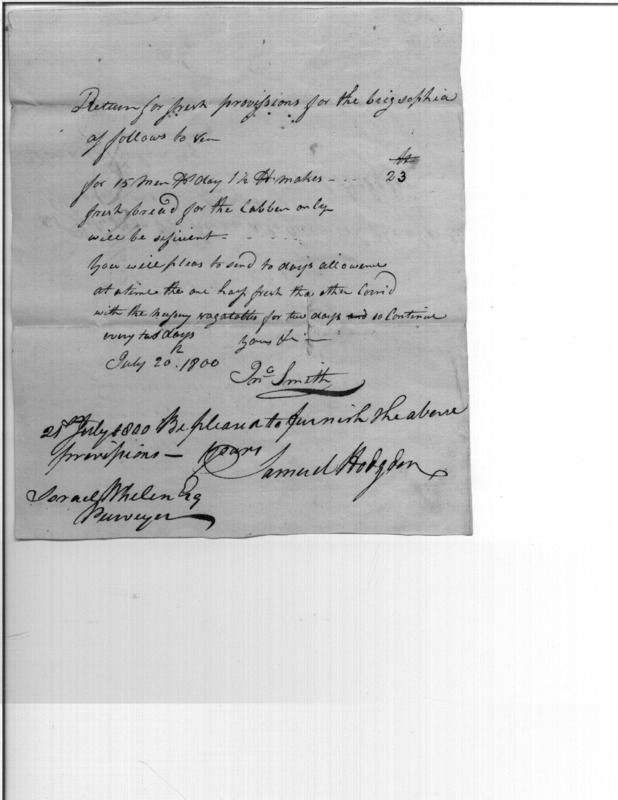 Return for fresh provisions for the brig sophia
as follows to
for 15 men pr day 1½ lb makes - - - 23
fresh bread for the Cabben only
will be sifient - - - - -
You will pleas to send to days allowence
at a time the one half fresh the other Corn'd
with the vagatabls for two days and so Continue
every two days Yours &c
July 20th. 1800
Jno. Smith
21st July 1800 Be pleased to furnish the above
provisions — Yours
Samuel Hodgdon
Israel Whelen Esq
Purveyer